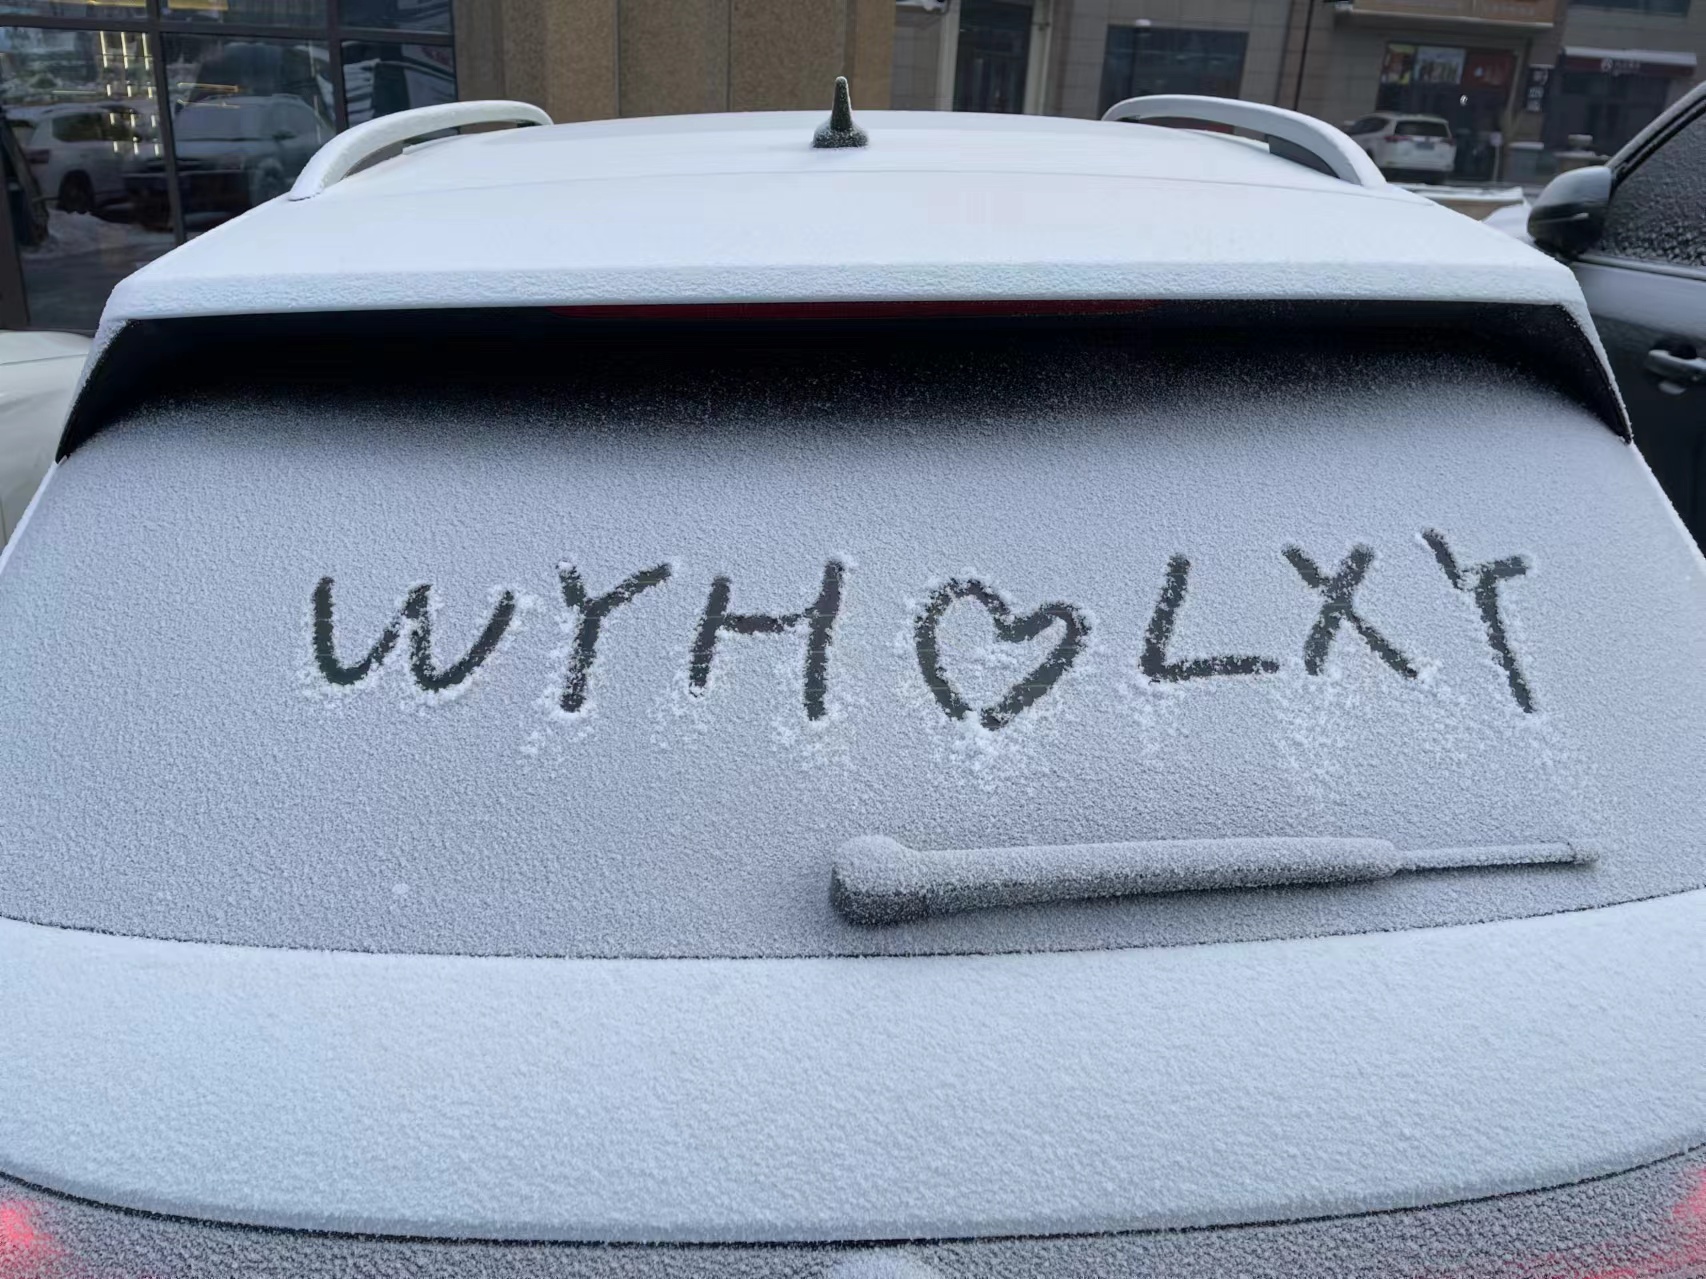 WYH♡LXY